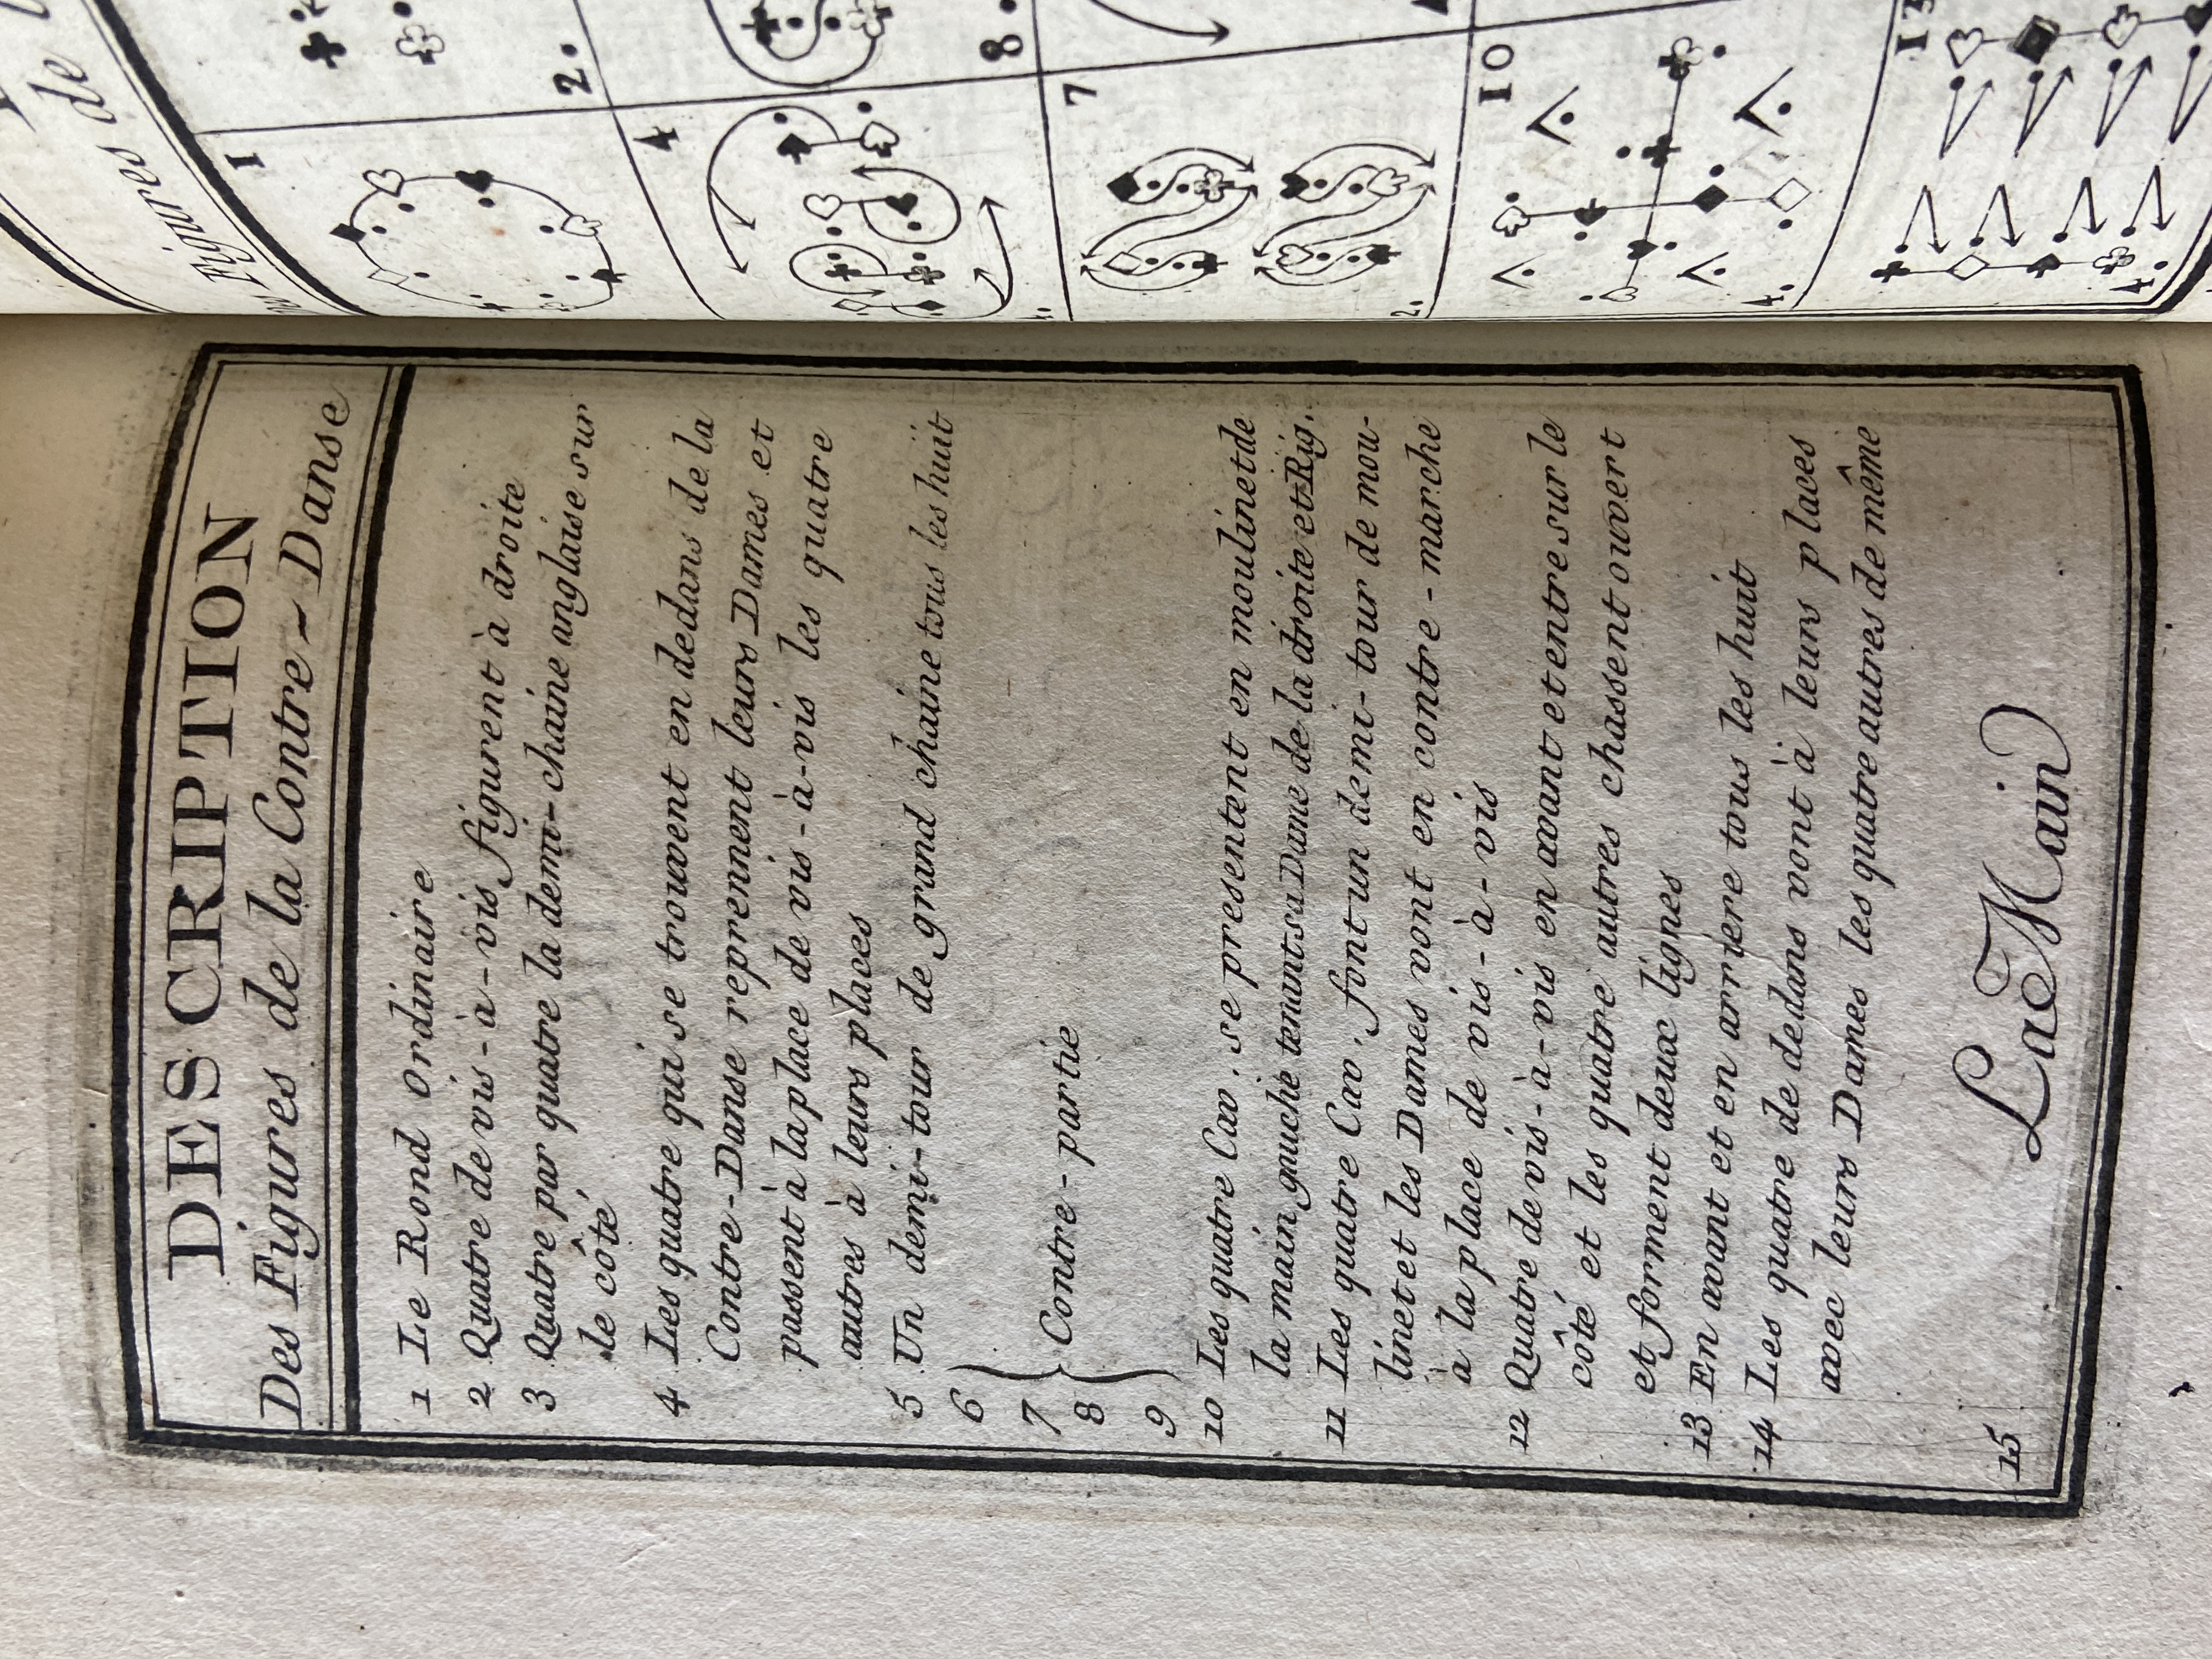 DESCRIPTION
Des Figures de la Contre-Danse
1 Le Rond Ordinaire
2 Quatre de vis-à-vis figurent à droite
3 Quatre par quatre la demi-chaine anglaise sur
le côté
4 Les quatre qui se trouvent en dedans de la
Contre-Danse reprennent leurs Dames et
passent à la place de vis-à-vis les quatre
autres à leurs places
5 Un demi-tour de grand chaine tous les huit
6
7
8
9
Contre-partie
10 Les quatre Cav. se presentent en moulinet de
la main gauche tenant sa Dame de la droite et Rig.
11 Les quatre Cav. font un demi-tour de mou-
linet et les Dames vont en contre-marche
à la place de vis-à-vis
12 Quatre de vis-à-vis en avant et entre sur le
côté et les quatre autres chassent ouvert
et forment deux lignes
13 En avant et en arriere tous les huit
14 Les quatre de dedans vont à leurs places
avec leurs Dames les quatre autres de même
15 La Main
Figures de
1
2.
4
8.
7
2.
10
4.
13
4.